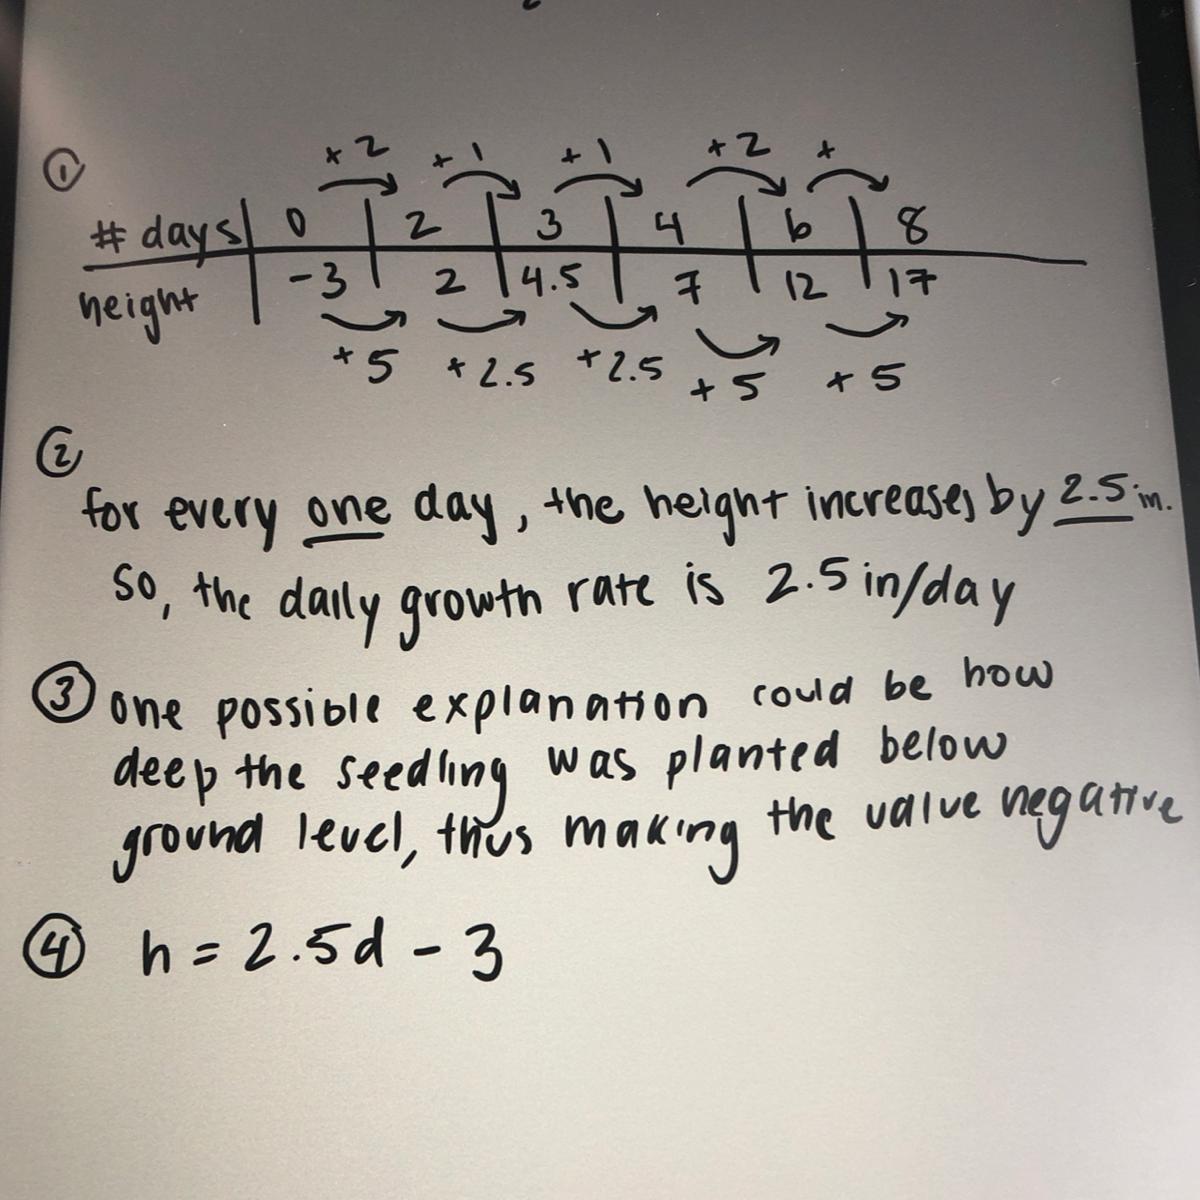 ①
+2 +1 +1 +2 +
# days 0 2 3 4 6 8
height -3 2 4.5 7 12 17
+5 +2.5 +2.5 +5 +5
②
for every one day, the height increases by 2.5 in.
so, the daily growth rate is 2.5 in/day
③ one possible explanation could be how
deep the seedling was planted below
ground level, thus making the value negative
④ h = 2.5d - 3